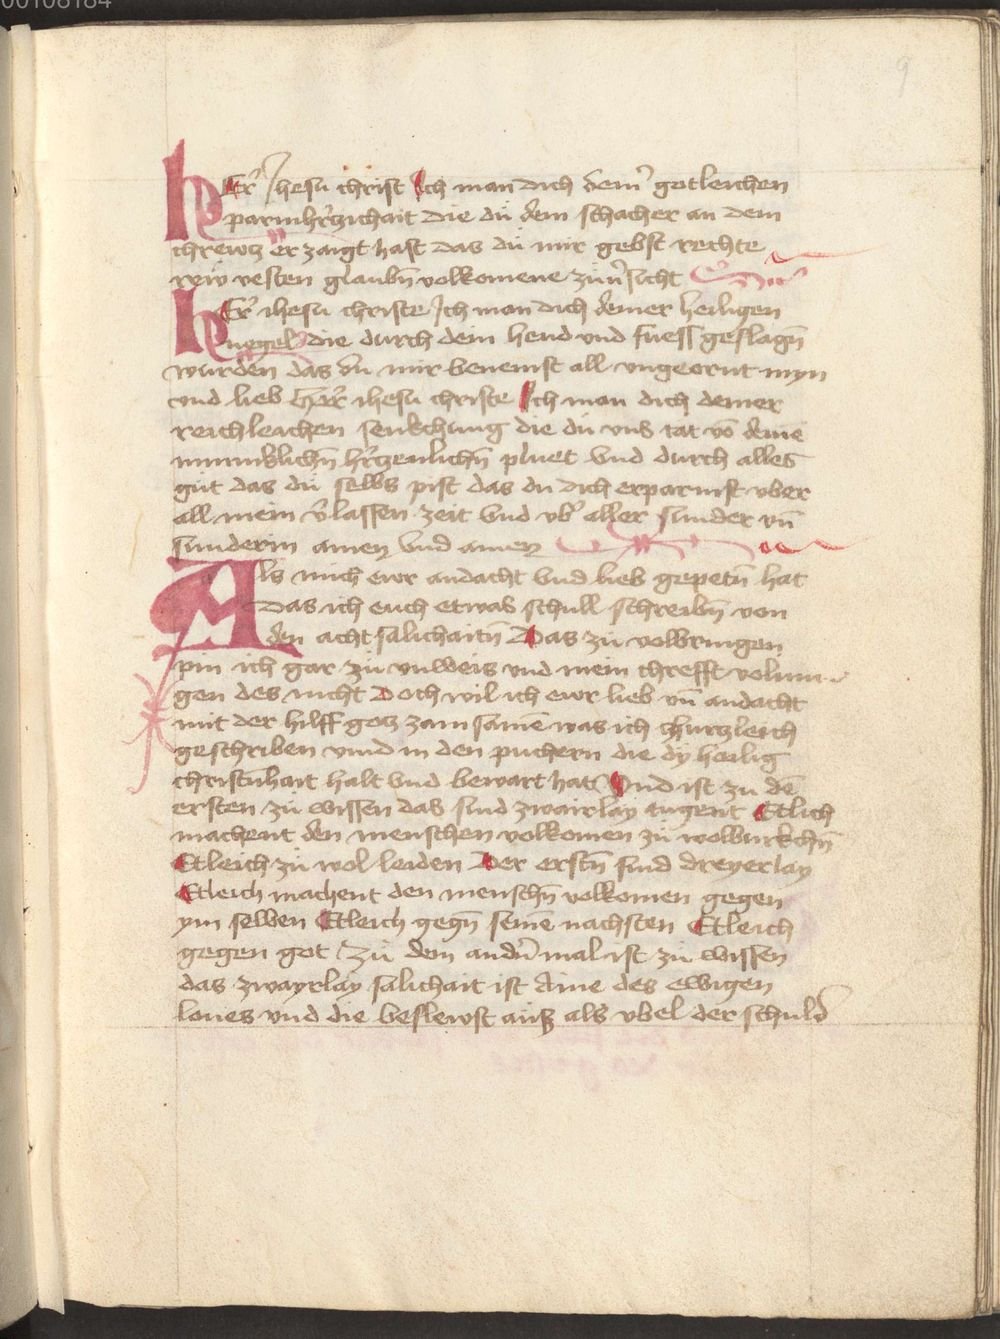 00108184
9
HEr̕ Jhesu christ Ich man dich deinr̕ gotleichen
parmhr̕czichait die dü dem schacher an dem
chrewcz er zaigt hast das dü mir gebst rechte
rew vesten glaubn̄ volkomene zuu̕sicht
HEr̕ ihesu christe Ich man dich deiner heiligen
negel die durch dein hend vnd fuess geslagn̄
wurden das du mir benemst all vngeornt myn
vnd lieb Her̕ ihesu christe Ich man dich deiner
reichleichen senkchung die dü vns tat vō deinē
mynniklichn̄ hr̕czenlichn̄ pluet vnd durch alles
güt das dü selbs pist das du dich erparmst vber
all mein v̕lassen zeit vnd vb̕ aller sunder vn̄
sunderin amen vnd amen
Als mich ewr andacht vnd lieb gepetn̄ hat
Das ich euch etwas schull schreibn̄ von
den acht salichaitn̄ Das zü volbringen
pin ich gar zü vnweis vnd mein chrefft volmu-
gen des nicht Doch wil ich ewr lieb vn̄ andacht
mit der hilff gocz zam samē was ich churczleich
geschriben vind in den püchern die dÿ heilig
christnhait halt vnd bewart hat Vnd ist zu dē
ersten zü wissen das sind zwairlay tugent Etlich
machent den menschen volkomen zü wolwurkchn̄
Etleich zü wol leiden Der erstn̄ sind dreyerlay
Etleich machent den menschn̄ volkomen gegen
ym selben Etleich gegn̄ seinē nachsten Etleich
gegen got Zü dem andn̄ mal ist zü wissen
das zwayrlay salichait ist Aine des ewigen
lones vnd die beslewst auss als vbel der schuld